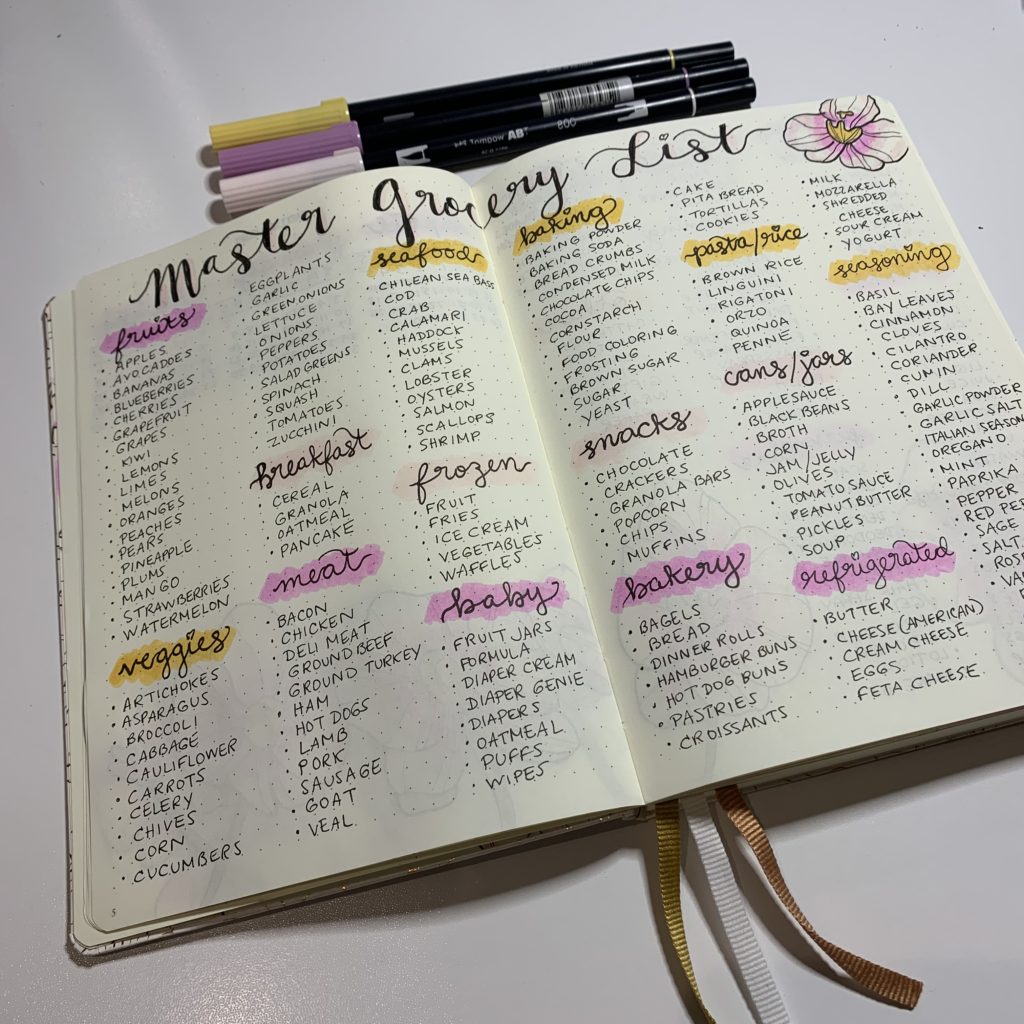 Tombow ABT
008
Master Grocery List
fruits
• APPLES
• AVOCADOS
• BANANAS
• BLUEBERRIES
• CHERRIES
• GRAPEFRUIT
• GRAPES
• KIWI
• LEMONS
• LIMES
• MELONS
• ORANGES
• PEACHES
• PEARS
• PINEAPPLE
• PLUMS
• MANGO
• STRAWBERRIES
• WATERMELON
veggies
• ARTICHOKES
• ASPARAGUS
• BROCCOLI
• CABBAGE
• CAULIFLOWER
• CARROTS
• CELERY
• CHIVES
• CORN
• CUCUMBERS
5
• EGGPLANTS
• GARLIC
• GREEN ONIONS
• LETTUCE
• ONIONS
• PEPPERS
• POTATOES
• SALAD GREENS
• SPINACH
• SQUASH
• TOMATOES
• ZUCCHINI
breakfast
• CEREAL
• GRANOLA
• OATMEAL
• PANCAKE
meat
• BACON
• CHICKEN
• DELI MEAT
• GROUND BEEF
• GROUND TURKEY
• HAM
• HOT DOGS
• LAMB
• PORK
• SAUSAGE
• GOAT
• VEAL
seafood
• CHILEAN SEA BASS
• COD
• CRAB
• CALAMARI
• HADDOCK
• MUSSELS
• CLAMS
• LOBSTER
• OYSTERS
• SALMON
• SCALLOPS
• SHRIMP
frozen
• FRUIT
• FRIES
• ICE CREAM
• VEGETABLES
• WAFFLES
baby
• FRUIT JARS
• FORMULA
• DIAPER CREAM
• DIAPER GENIE
• DIAPERS
• OATMEAL
• PUFFS
• WIPES
baking
• BAKING POWDER
• BAKING SODA
• BREAD CRUMBS
• CONDENSED MILK
• CHOCOLATE CHIPS
• COCOA
• CORNSTARCH
• FLOUR
• FOOD COLORING
• FROSTING
• BROWN SUGAR
• SUGAR
• YEAST
snacks
• CHOCOLATE
• CRACKERS
• GRANOLA BARS
• POPCORN
• CHIPS
• MUFFINS
bakery
• BAGELS
• BREAD
• DINNER ROLLS
• HAMBURGER BUNS
• HOT DOG BUNS
• PASTRIES
• CROISSANTS
• CAKE
• PITA BREAD
• TORTILLAS
• COOKIES
pasta/rice
• BROWN RICE
• LINGUINI
• RIGATONI
• ORZO
• QUINOA
• PENNE
cans/jars
• APPLESAUCE
• BLACK BEANS
• BROTH
• CORN
• JAM/JELLY
• OLIVES
• TOMATO SAUCE
• PEANUT BUTTER
• PICKLES
• SOUP
refrigerated
• BUTTER
• CHEESE (AMERICAN)
• CREAM CHEESE
• EGGS
• FETA CHEESE
• MILK
• MOZZARELLA
• SHREDDED
CHEESE
• SOUR CREAM
• YOGURT
seasoning
• BASIL
• BAY LEAVES
• CINNAMON
• CLOVES
• CILANTRO
• CORIANDER
• CUMIN
• DILL
• GARLIC POWDER
• GARLIC SALT
• ITALIAN SEASON
• OREGANO
• MINT
• PAPRIKA
• PEPPER
• RED PE
• SAGE
• SALT
• ROS
• VA